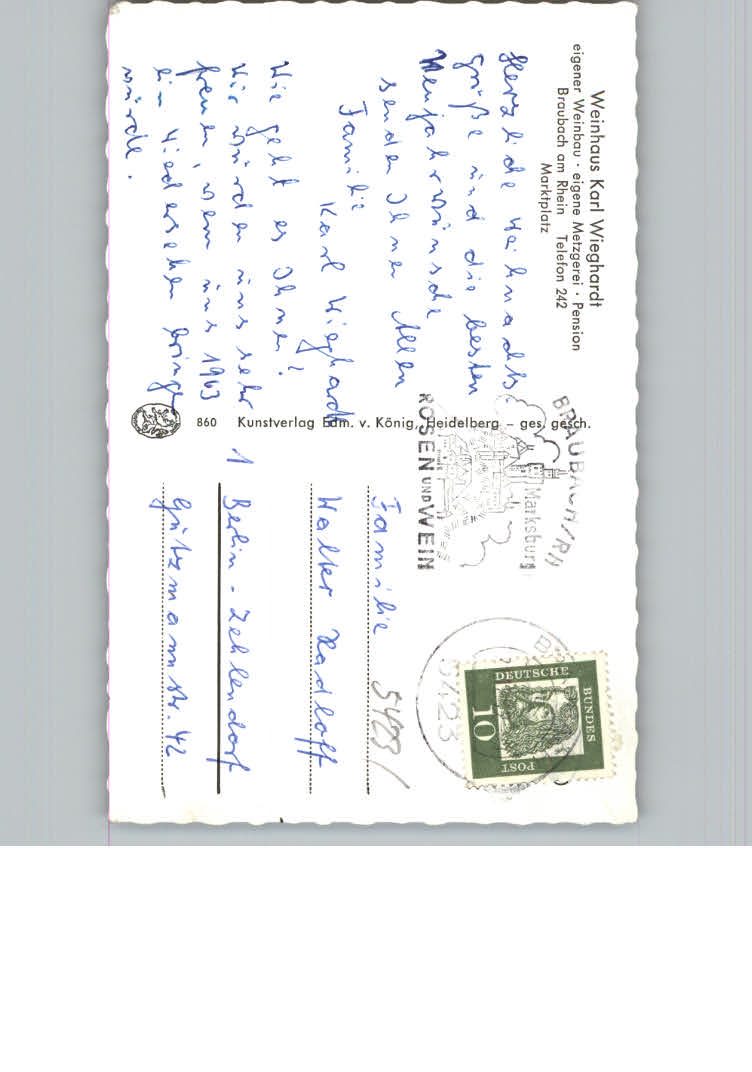 Weinhaus Karl Wieghardt
eigener Weinbau · eigene Metzgerei · Pension
Braubach am Rhein Telefon 242
Marktplatz
Herzliche Weihnachts-
grüße und die besten
Neujahrswünsche
senden Ihnen Allen
Familie
Karl Wieghardt
Wie geht es Ihnen?
Wir würden uns sehr
freuen, wenn uns 1963
ein Wiedersehen bringen
würde.
860 Kunstverlag Edm. v. König, Heidelberg – ges. gesch.
BRAUBACH/RH
Marksburg
ROSEN UND WEIN
5423
DEUTSCHE
BUNDES
POST
10
Familie
5423/
Walter Radloff
1 Berlin-Zehlendorf
Gützmannstr. 42